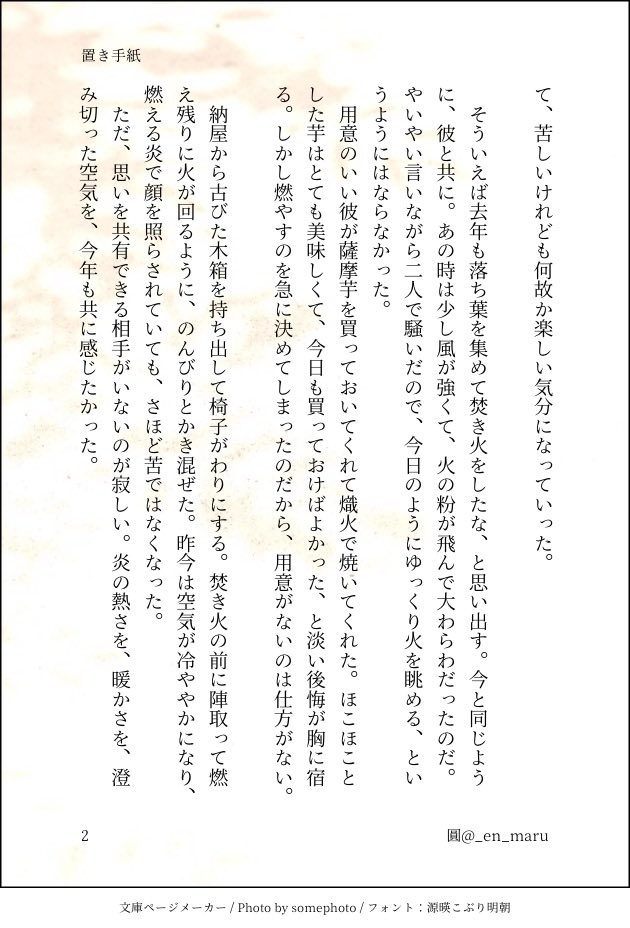 置き手紙
て、苦しいけれども何故か楽しい気分になっていった。
そういえば去年も落ち葉を集めて焚き火をしたな、と思い出す。今と同じよう
に、彼と共に。あの時は少し風が強くて、火の粉が飛んで大わらわだったのだ。
やいやい言いながら二人で騒いだので、今日のようにゆっくり火を眺める、とい
うようにはならなかった。
用意のいい彼が薩摩芋を買っておいてくれて熾火で焼いてくれた。ほこほこと
した芋はとても美味しくて、今日も買っておけばよかった、と淡い後悔が胸に宿
る。しかし燃やすのを急に決めてしまったのだから、用意がないのは仕方がない。
納屋から古びた木箱を持ち出して椅子がわりにする。焚き火の前に陣取って燃
え残りに火が回るように、のんびりとかき混ぜた。昨今は空気が冷ややかになり、
燃える炎で顔を照らされていても、さほど苦ではなくなった。
ただ、思いを共有できる相手がいないのが寂しい。炎の熱さを、暖かさを、澄
み切った空気を、今年も共に感じたかった。
2
圓@_en_maru
文庫ページメーカー / Photo by somephoto / フォント：源暎こぶり明朝